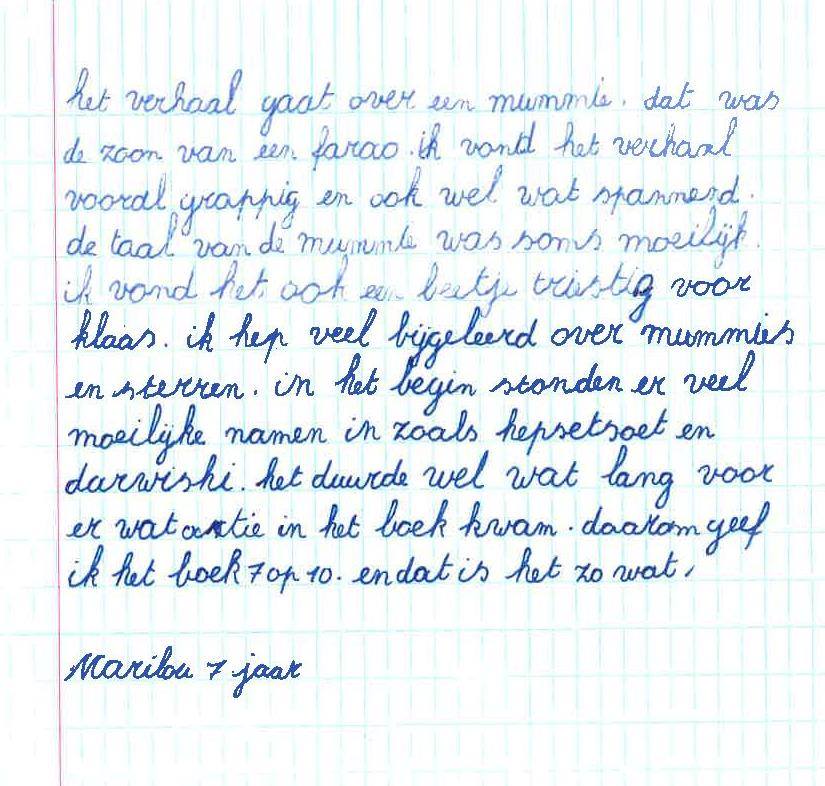 het verhaal gaat over een mummie. dat was
de zoon van een farao. ik vond het verhaal
vooral grappig en ook wel wat spannend.
de taal van de mummie was soms moeilijk.
ik vond het ook een beetje triestig voor
klaas. ik hep veel bijgeleerd over mummies
en sterren. in het begin stonden er veel
moeilijke namen in zoals hepsetsoet en
darwishi. het duurde wel wat lang voor
er wat actie in het boek kwam. daarom geef
ik het boek 7 op 10. en dat is het zo wat.
Marilou 7 jaar